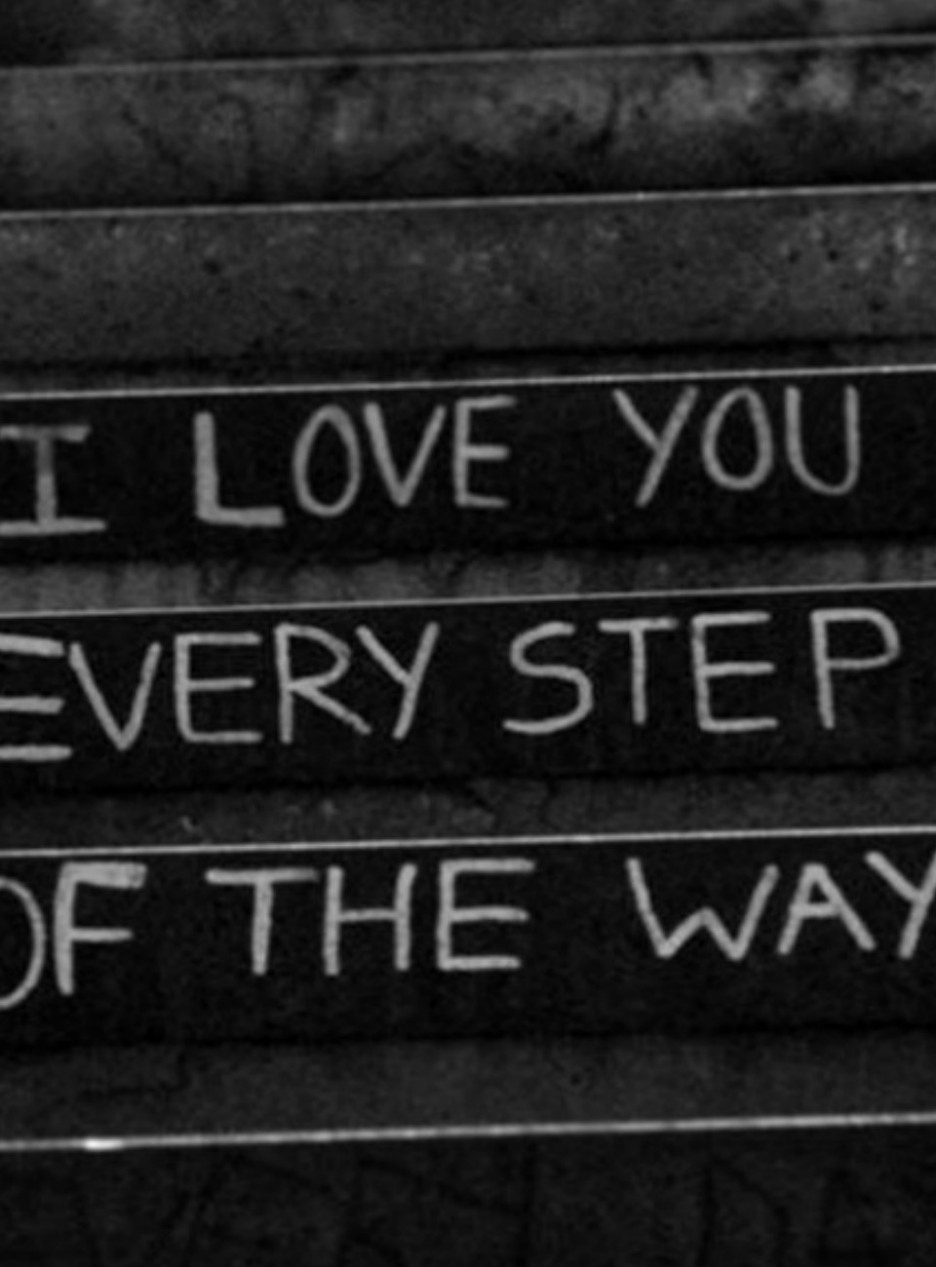 I LOVE YOU
EVERY STEP
OF THE WAY